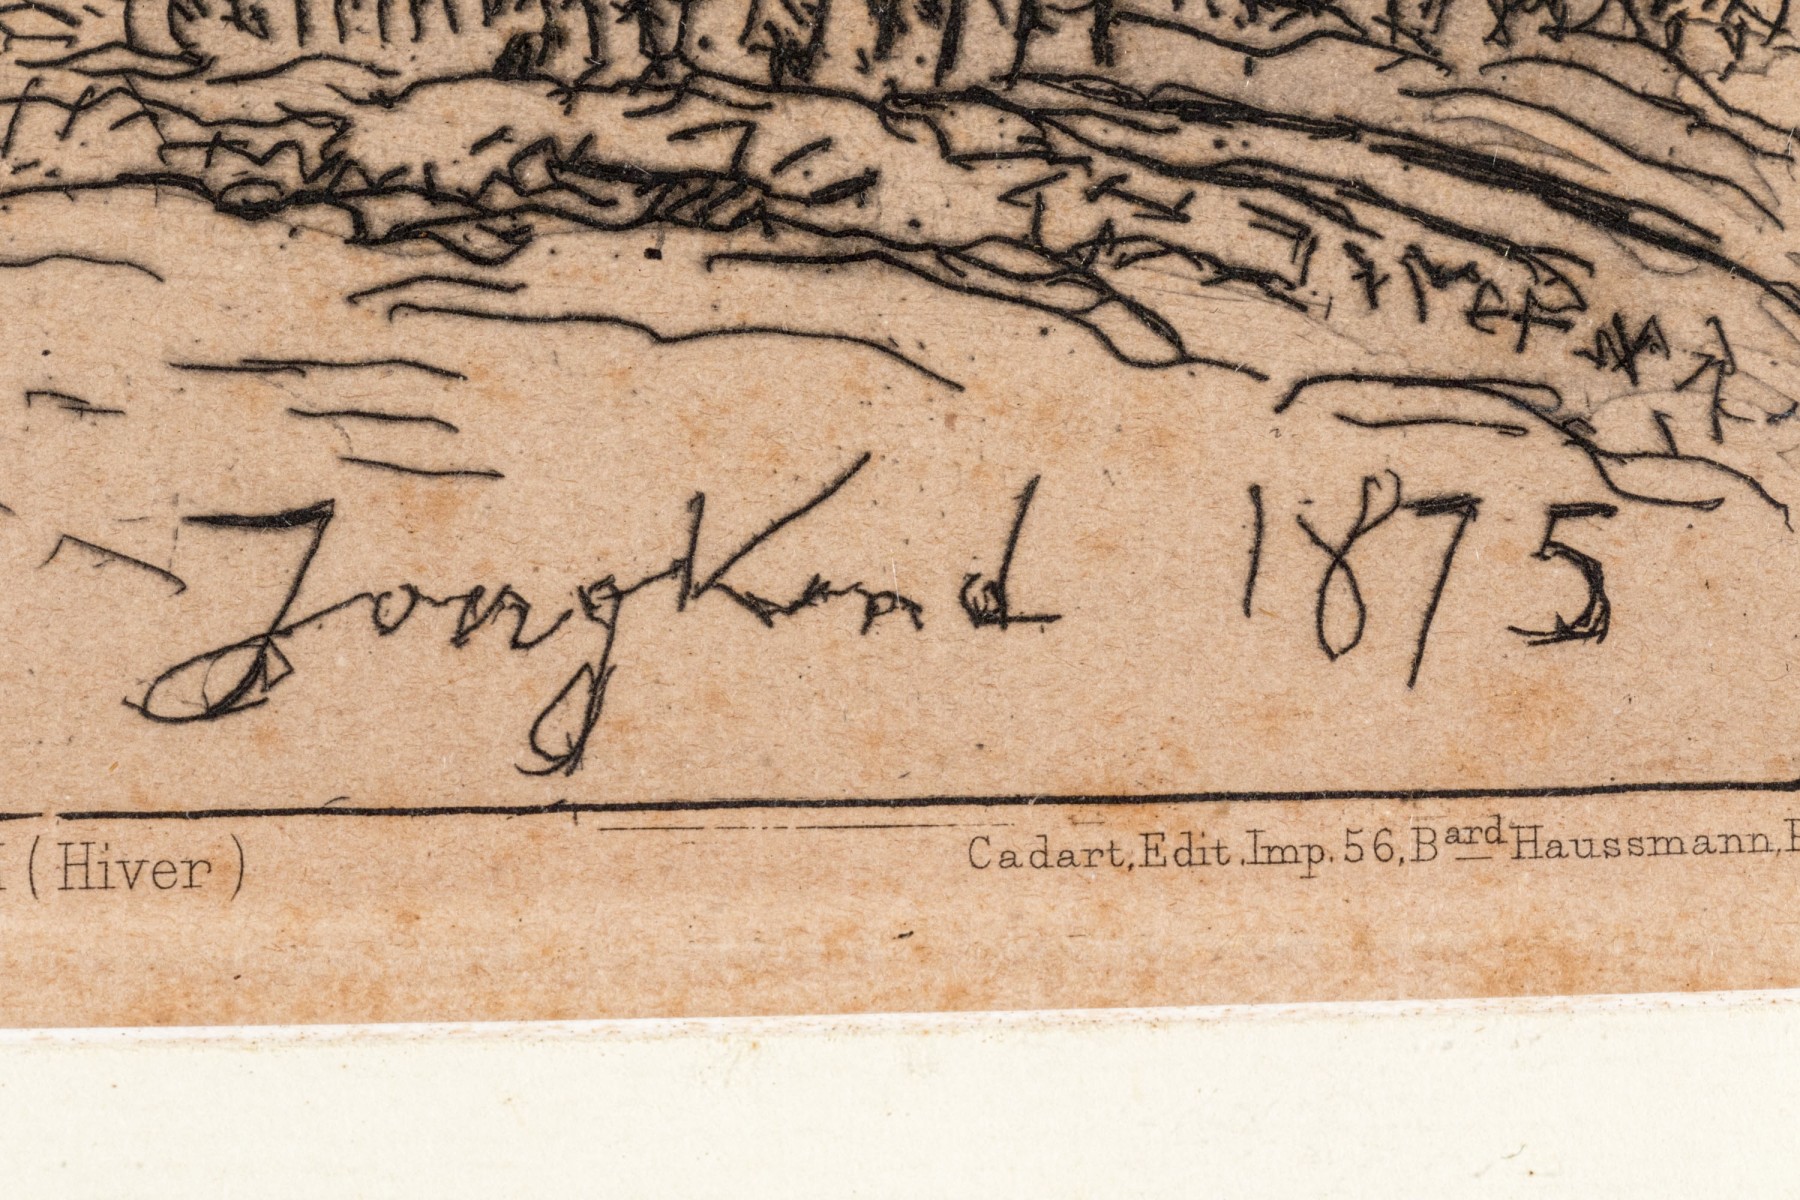 Jongkind 1875
(Hiver)
Cadart, Edit. Imp. 56, Bard Haussmann,